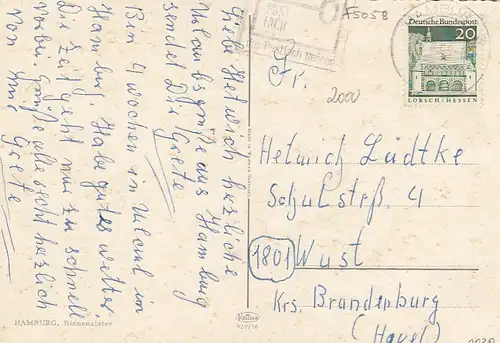 Liebe Hetwich herzliche
Urlaubsgrüße aus Hamburg
sendet Dir Grete
Bin 4 Wochen in Urlaub in
Hamburg. Habe gutes Wetter
Die Zeit geht nur zu schnell
vorbei. Grüße alle recht herzlich
von mir
Grete
HAMBURG, Binnenalster
Krüger
920/16
POST
FACH
A5058
Deutsche Bundespost
20
LORSCH/HESSEN
Fr.
2000
Hetwich Lüdtke
Schulstrß. 4
1801 Wust
Krs. Brandenburg
(Havel)